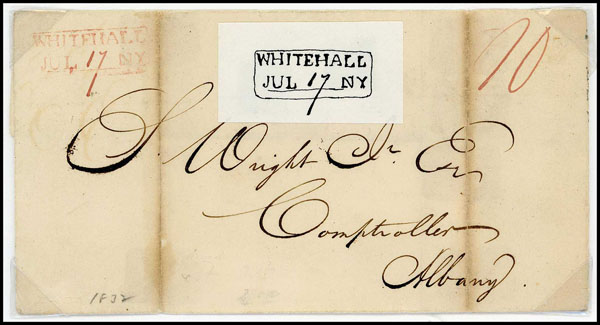 WHITEHALL
JUL 17 NY
1
WHITEHALL
JUL 17 NY
7
10
S. Wright Jr. Esq
Comptroller
Albany.
1832